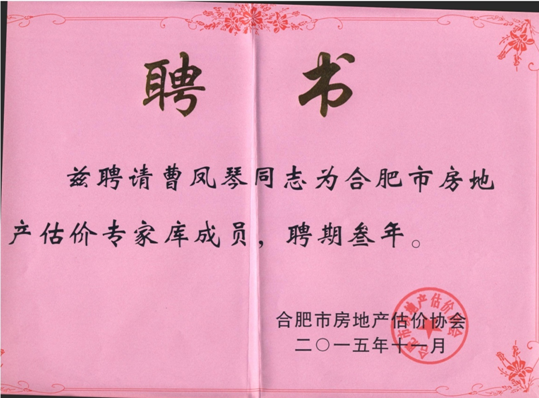 聘书
兹聘请曹凤琴同志为合肥市房地
产估价专家库成员，聘期叁年。
合肥市房地产估价协会
二〇一五年十一月
合肥市房地产估价协会